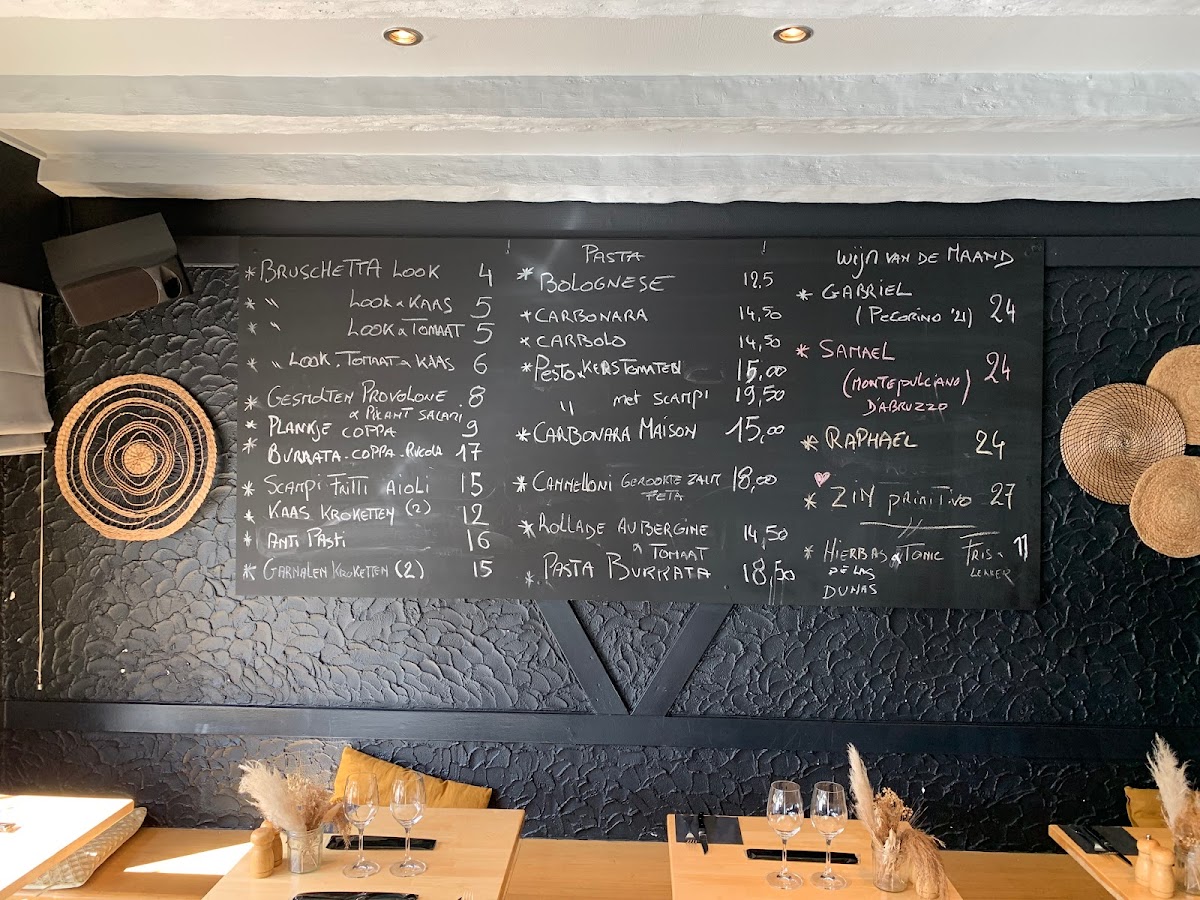 * BRUSCHETTA LOOK 4
* " LOOK & KAAS 5
* " LOOK & TOMAAT 5
* " LOOK. TOMAAT & KAAS 6
* GESMOLTEN PROVOLONE 8
& PIKANT SALAMI
* PLANKJE COPPA 9
* BURRATA - COPPA - RUCOLA 17
* SCAMPI FRITTI AIOLI 15
* KAAS KROKETTEN (2) 12
* ANTI PASTI 16
* GARNALEN KROKETTEN (2) 15
PASTA
* BOLOGNESE 12.5
* CARBONARA 14,50
* CARBOLO 14,50
* PESTO & KERSTOMATEN 15,00
" met SCAMPI 19,50
* CARBONARA MAISON 15,00
* CANNELLONI GEROOKTE ZALM 18,00
FETA
* ROLLADE AUBERGINE 14,50
& TOMAAT
* PASTA BURRATA 18,50
WIJN VAN DE MAAND
* GABRIEL
(PECORINO '21) 24
* SAMAEL 24
(MONTEPULCIANO)
D'ABRUZZO
* RAPHAEL 24
* ZIN PRIMITIVO 27
* HIERBAS & TONIC FRIS & 11
DE LAS LEKKER
DUNAS